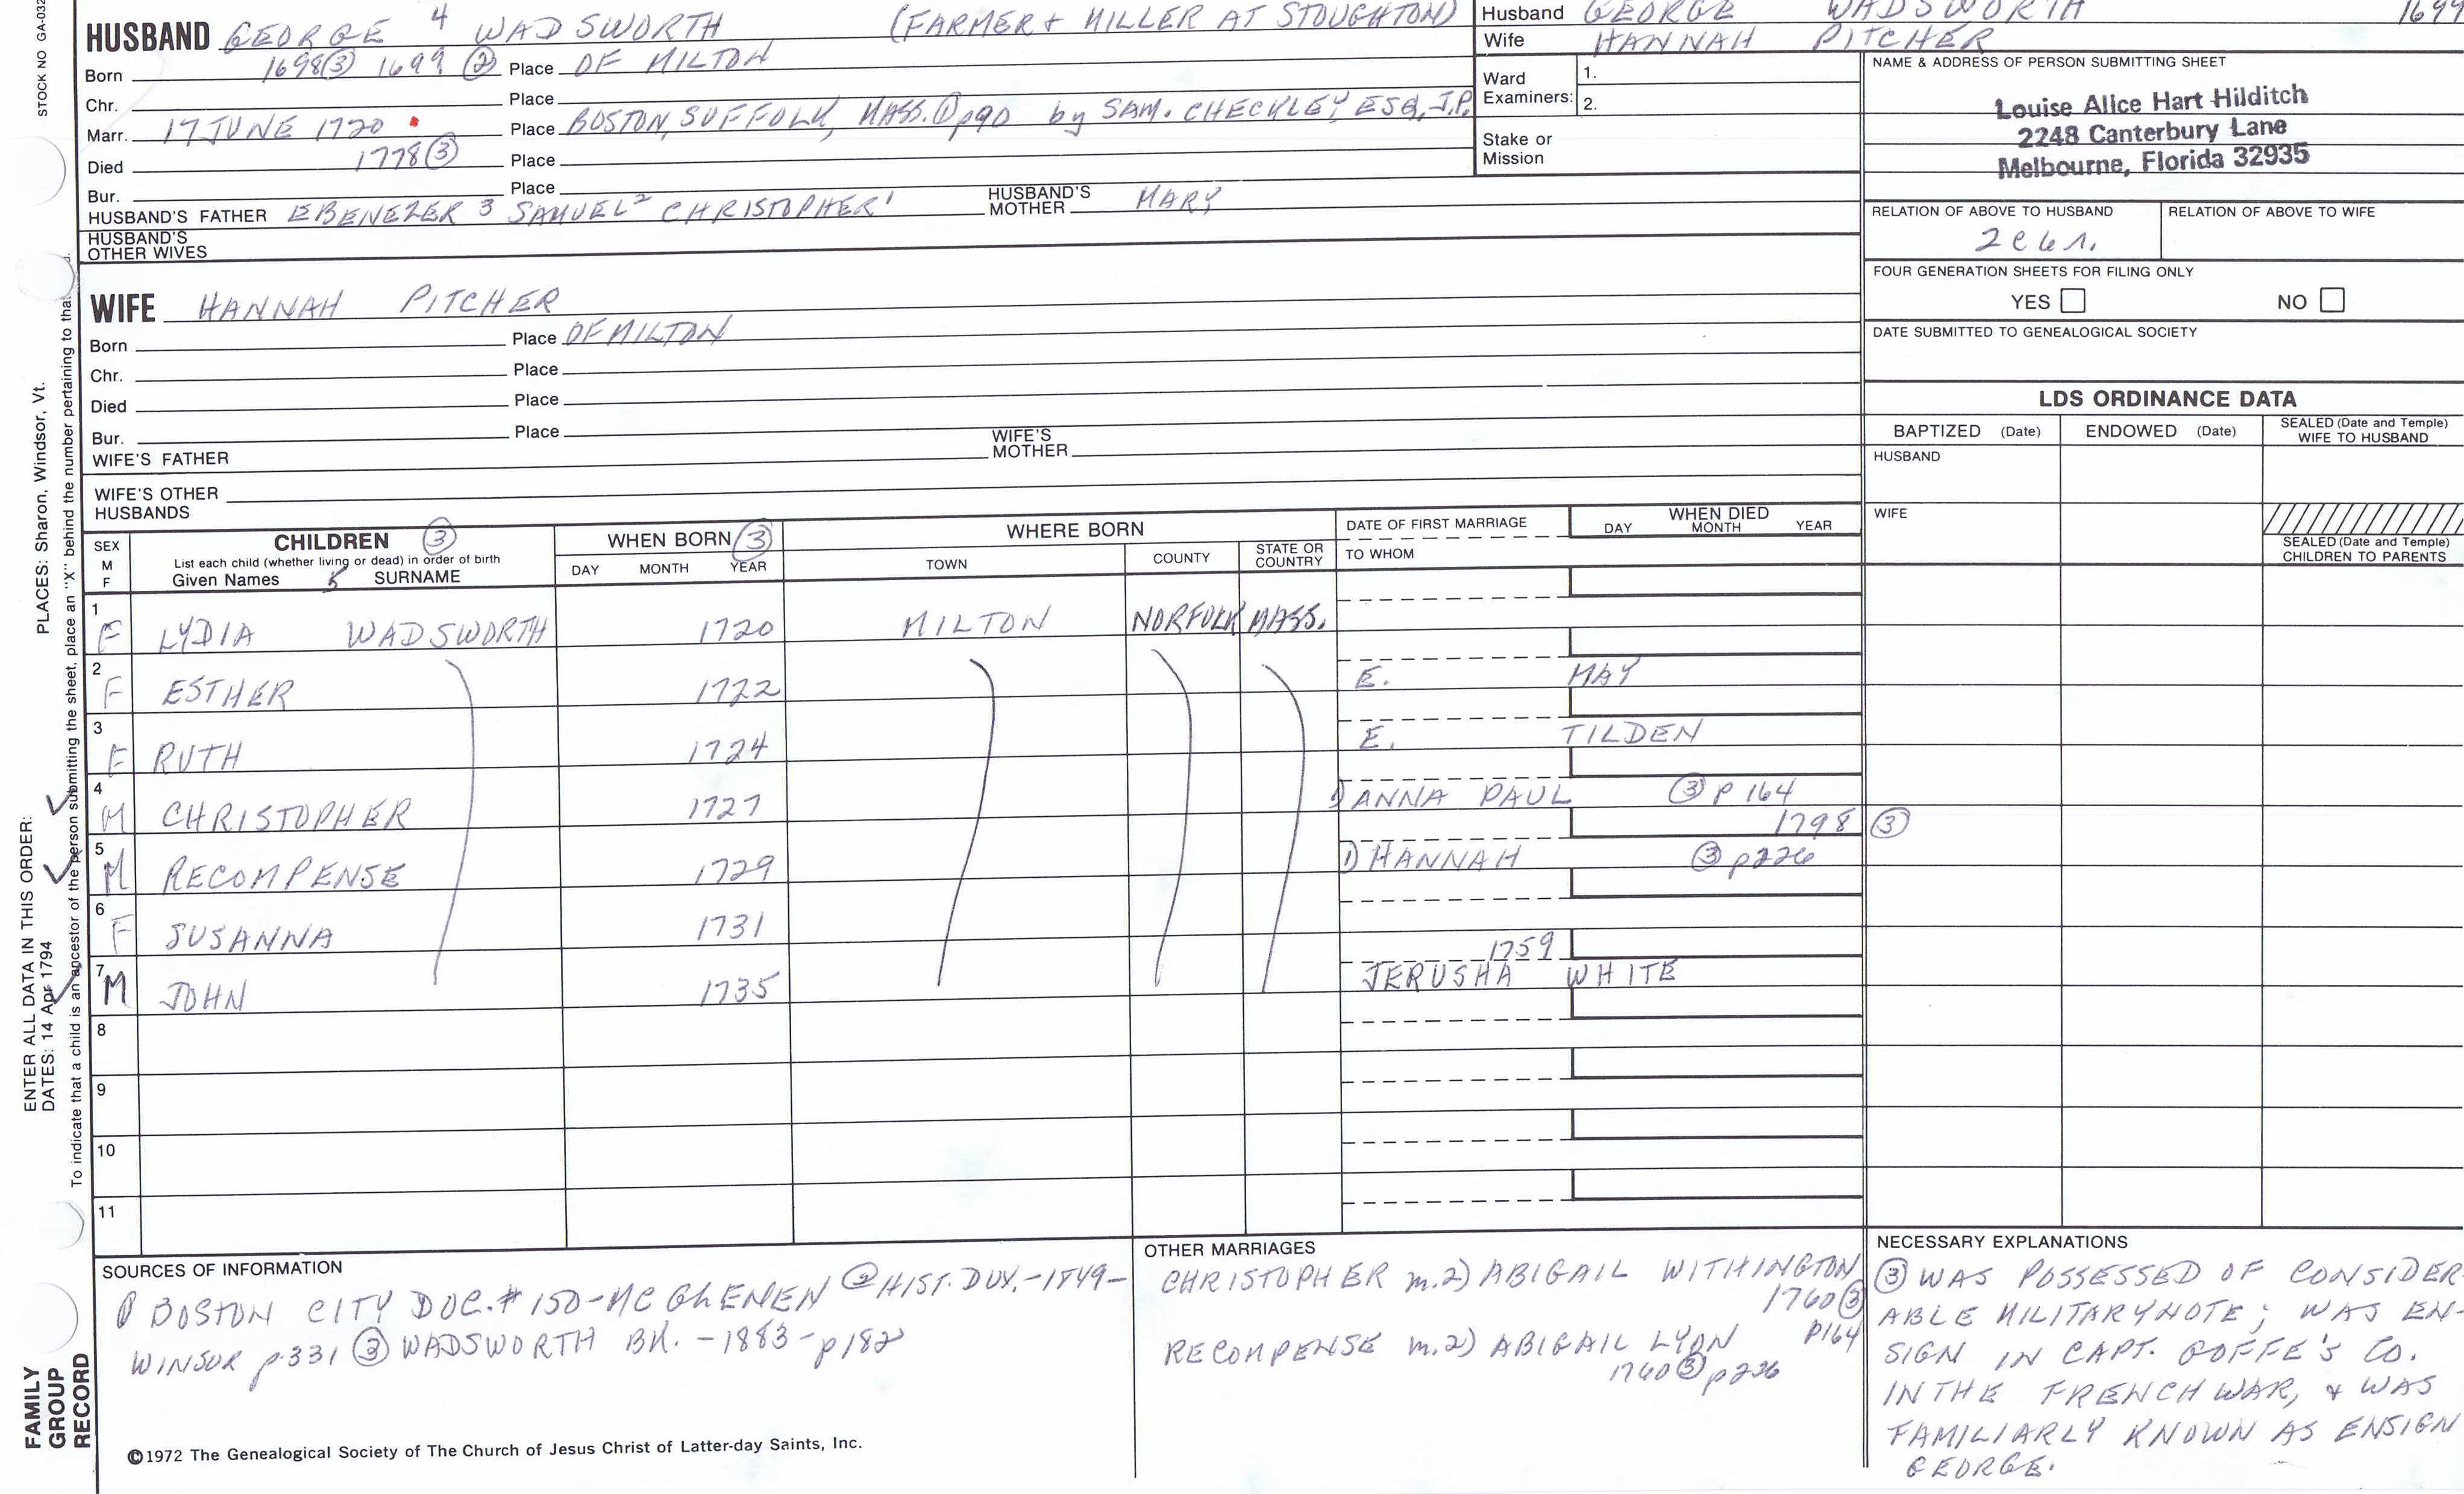 STOCK NO GA-032
HUSBAND GEORGE 4 WADSWORTH (FARMER + MILLER AT STOUGHTON)
Born 1698 ③ 1699 ② Place OF MILTON
Chr. Place
Marr. 17 JUNE 1720 Place BOSTON, SUFFOLK, MASS. ① p90 by SAM. CHECKLEY, ESQ, J.P.
Died 1778 ③ Place
Bur. Place
HUSBAND'S FATHER EBENEZER 3 SAMUEL 2 CHRISTOPHER 1 HUSBAND'S MOTHER MARY
HUSBAND'S OTHER WIVES
WIFE HANNAH PITCHER
Born Place OF MILTON
Chr. Place
Died Place
Bur. Place
WIFE'S FATHER WIFE'S MOTHER
WIFE'S OTHER HUSBANDS
Husband GEORGE WADSWORTH 1699
Wife HANNAH PITCHER
Ward Examiners: 1.
2.
Stake or Mission
NAME & ADDRESS OF PERSON SUBMITTING SHEET
Louise Alice Hart Hilditch
2248 Canterbury Lane
Melbourne, Florida 32935
RELATION OF ABOVE TO HUSBAND RELATION OF ABOVE TO WIFE
2c6r.
FOUR GENERATION SHEETS FOR FILING ONLY
YES NO
DATE SUBMITTED TO GENEALOGICAL SOCIETY
LDS ORDINANCE DATA
BAPTIZED (Date) ENDOWED (Date) SEALED (Date and Temple) WIFE TO HUSBAND
HUSBAND
WIFE
SEALED (Date and Temple) CHILDREN TO PARENTS
SEX M F
CHILDREN ③
List each child (whether living or dead) in order of birth
Given Names 5 SURNAME
WHEN BORN ③
DAY MONTH YEAR
WHERE BORN
TOWN COUNTY STATE OR COUNTRY
DATE OF FIRST MARRIAGE
TO WHOM
WHEN DIED
DAY MONTH YEAR
1 F LYDIA WADSWORTH 1720 MILTON NORFOLK MASS.
2 F ESTHER 1722 E. MAY
3 F RUTH 1724 E. TILDEN
4 M CHRISTOPHER 1727 1) ANNA PAUL ③ P 164
1798 ③
5 M RECOMPENSE 1729 1) HANNAH ③ p226
6 F SUSANNA 1731
1759
7 M JOHN 1735 JERUSHA WHITE
8
9
10
11
SOURCES OF INFORMATION
① BOSTON CITY DOC. # 150-MC GLENEN ② HIST. DUX.-1849-
WINSOR p331 ③ WADSWORTH BK. - 1883 - p182
©1972 The Genealogical Society of The Church of Jesus Christ of Latter-day Saints, Inc.
OTHER MARRIAGES
CHRISTOPHER m.2) ABIGAIL WITHINGTON
1760 ③
P164
RECOMPENSE m.2) ABIGAIL LYON
1760 ③ p226
NECESSARY EXPLANATIONS
③ WAS POSSESSED OF CONSIDER-
ABLE MILITARY NOTE; WAS EN-
SIGN IN CAPT. GOFFE'S CO.
IN THE FRENCH WAR, + WAS
FAMILIARLY KNOWN AS ENSIGN
GEORGE.
FAMILY GROUP RECORD
ENTER ALL DATA IN THIS ORDER:
DATES: 14 Apr 1794
PLACES: Sharon, Windsor, Vt.
To indicate that a child is an ancestor of the person submitting the sheet, place an "X" behind the number pertaining to that